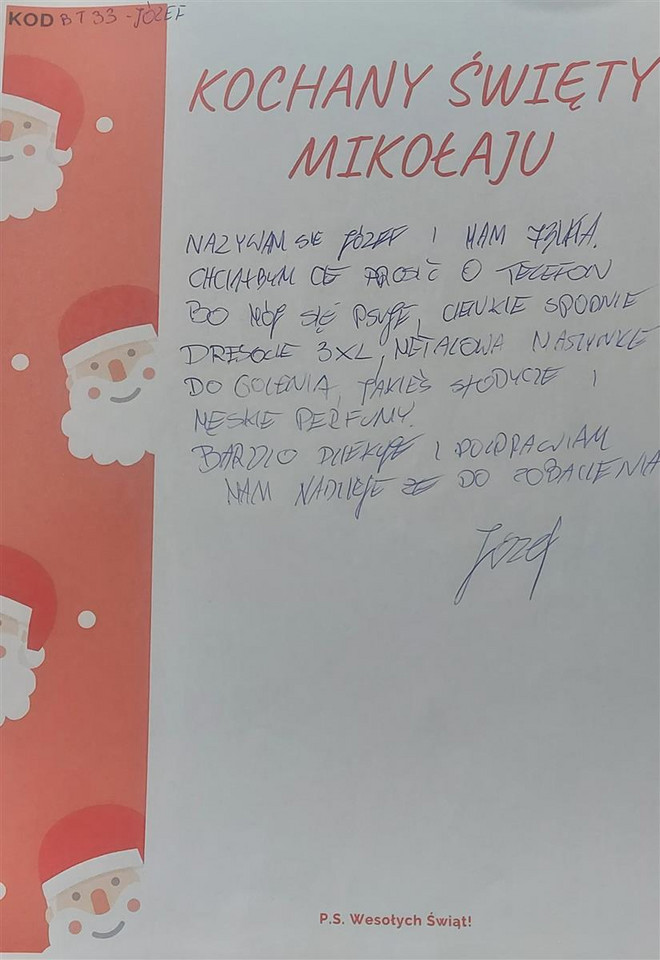 KOD BT33 - JÓZEF
KOCHANY ŚWIĘTY
MIKOŁAJU
NAZYWAM SIĘ JÓZEF I MAM 73 LATA.
CHCIAŁBYM CIĘ PROSIĆ O TELEFON
BO MÓJ SIĘ PSUJE, CIENKIE SPODNIE
DRESOWE 3XL, METALOWĄ MASZYNKĘ
DO GOLENIA, JAKIEŚ SŁODYCZE I
MĘSKIE PERFUMY.
BARDZO DZIĘKUJĘ I POZDRAWIAM
MAM NADZIEJĘ ŻE DO ZOBACZENIA
Józef
P.S. Wesołych Świąt!